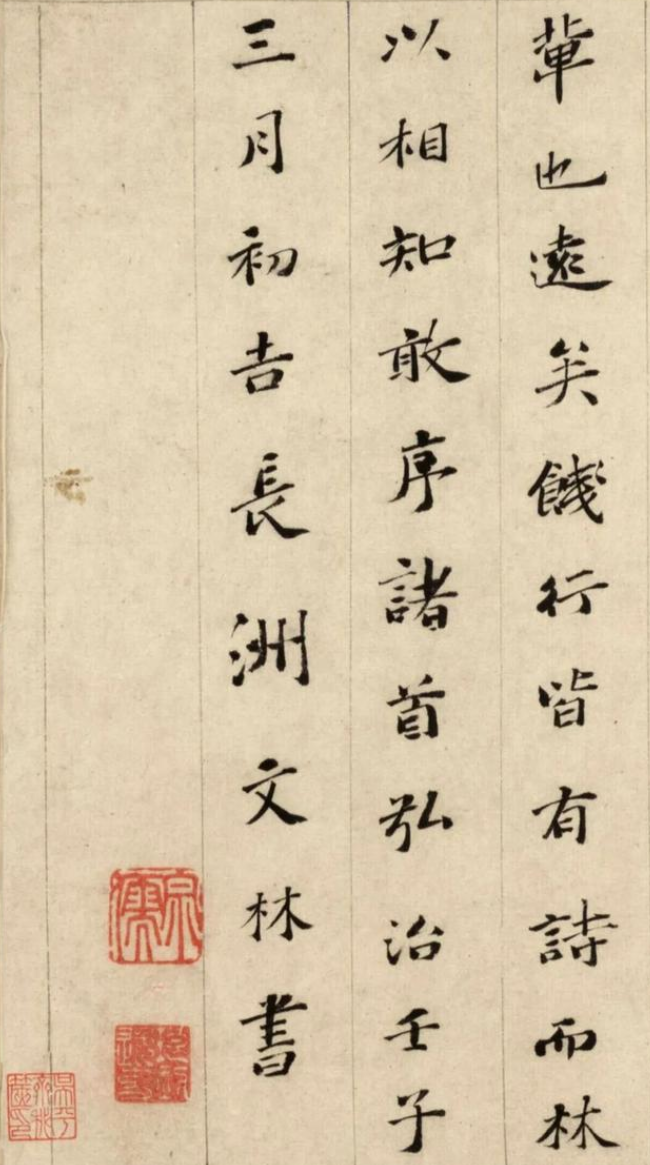 輩也遠矣餞行皆有詩而林
以相知敢序諸首弘治壬子
三月初吉長洲文林書